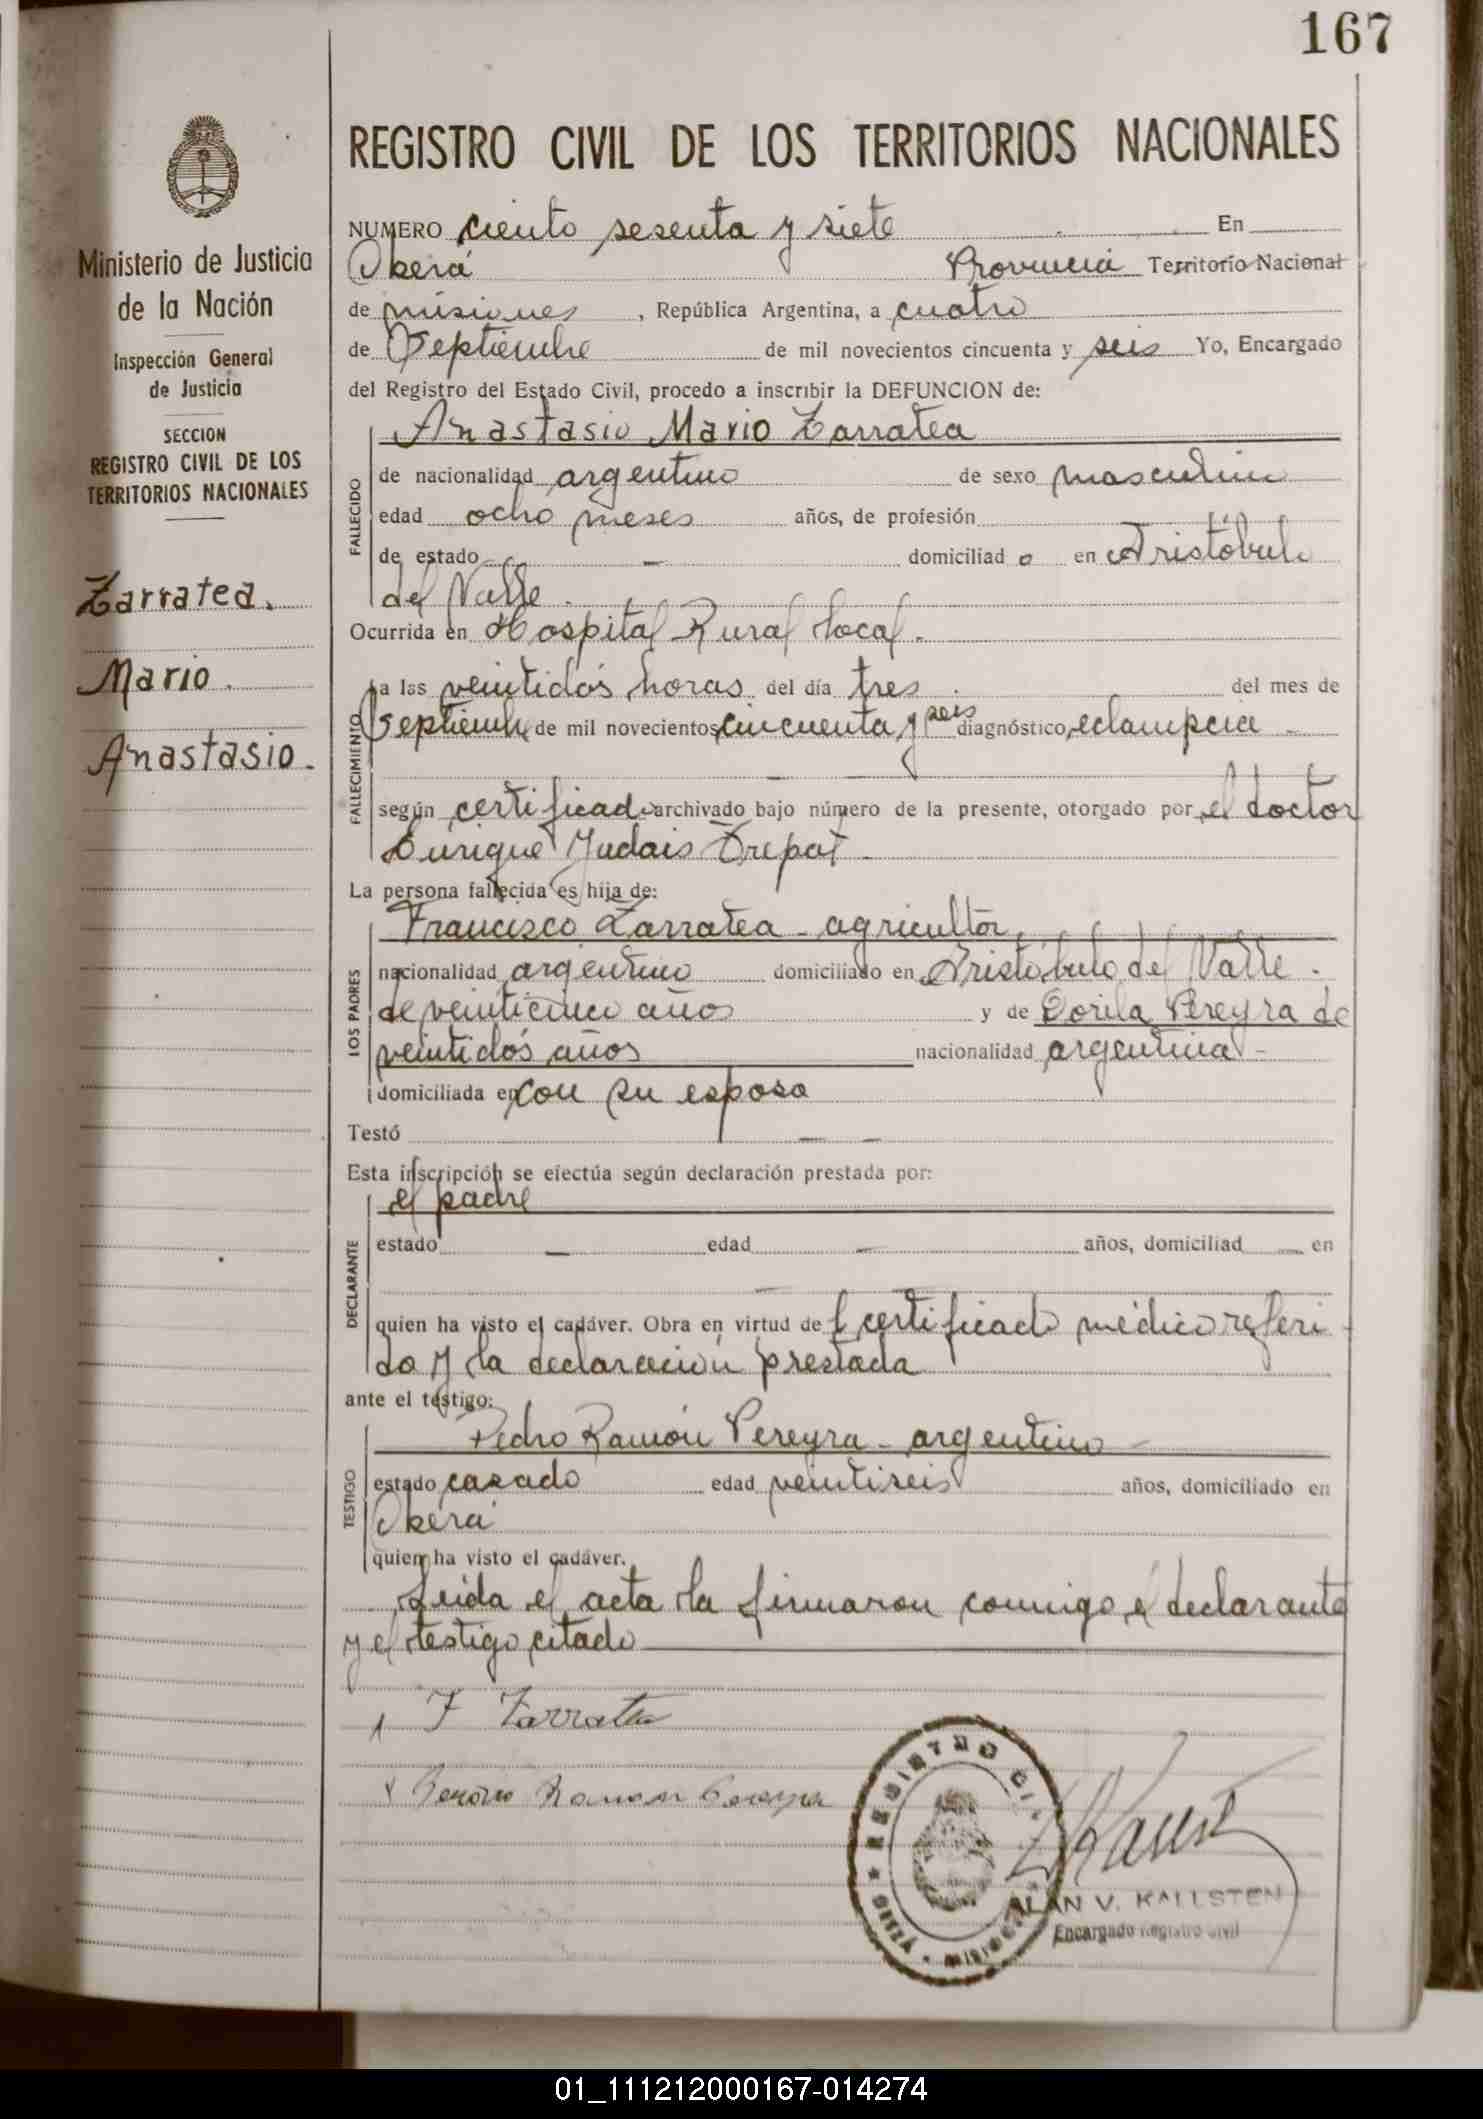 167
REGISTRO CIVIL DE LOS TERRITORIOS NACIONALES
Ministerio de Justicia
de la Nación
Inspección General
de Justicia
SECCION
REGISTRO CIVIL DE LOS
TERRITORIOS NACIONALES
Zarratea.
Mario.
Anastasio.
NUMERO ciento sesenta y siete En
Oberá Provincia Territorio Nacional
de misiones, República Argentina, a cuatro
de Septiembre de mil novecientos cincuenta y seis Yo, Encargado
del Registro del Estado Civil, procedo a inscribir la DEFUNCION de:
FALLECIDO
Anastasio Mario Zarratea
de nacionalidad argentino de sexo masculino
edad ocho meses años, de profesión
de estado - domiciliad o en Aristóbulo
del Valle.
Ocurrida en Hospital Rural local.
FALLECIMIENTO
a las veintidós horas del día tres. del mes de
Septiembre de mil novecientos cincuenta y seis diagnóstico, eclampcia -
según certificado archivado bajo número de la presente, otorgado por el doctor
Enrique Judais Trepat -
La persona fallecida es hija de:
LOS PADRES
Francisco Zarratea - agricultor,
nacionalidad argentino domiciliado en Aristóbulo del Valle.
de veinticinco años y de Dorila Pereyra de
veintidós años nacionalidad argentina -
domiciliada en con su esposo
Testó - -
Esta inscripción se efectúa según declaración prestada por:
DECLARANTE
el padre
estado - edad - años, domiciliad - en
quien ha visto el cadáver. Obra en virtud de l certificado médico referi
do y la declaración prestada
ante el testigo:
TESTIGO
Pedro Ramón Pereyra - argentino -
estado casado edad veintiseis años, domiciliado en
Oberá
quien ha visto el cadáver.
Leída el acta la firmaron conmigo el declarante
y el testigo citado
F Zarratea
Ramon Pereyra
REGISTRO CIVIL
MISIONES
ALAN V. KALLSTEN
Encargado Registro Civil
01_111212000167-014274